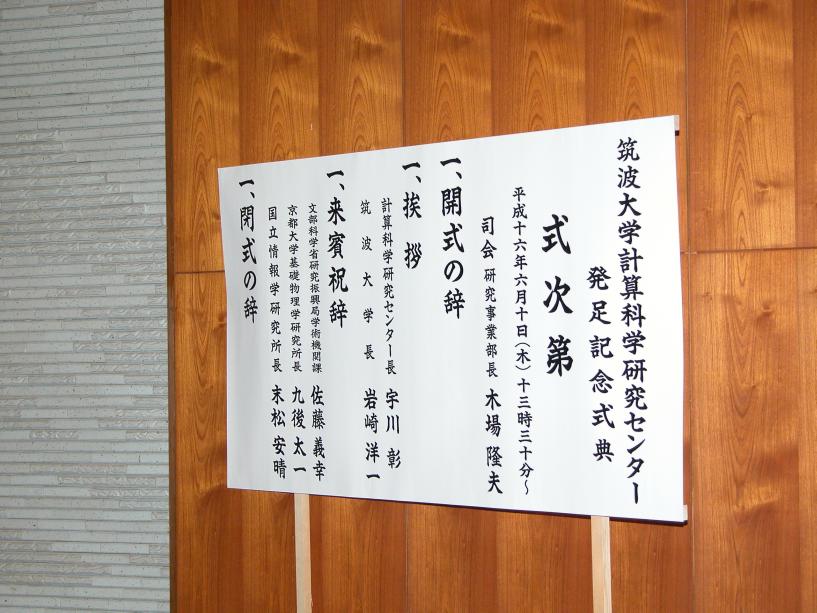 筑波大学計算科学研究センター
発足記念式典
式次第
平成十六年六月十日(木)十三時三十分~
司会 研究事業部長 木場 隆夫
一、開式の辞
一、挨拶
計算科学研究センター長 宇川 彰
筑波大学長 岩崎 洋一
一、来賓祝辞
文部科学省研究振興局学術機関課 佐藤 義幸
京都大学基礎物理学研究所長 九後 太一
国立情報学研究所長 末松 安晴
一、閉式の辞